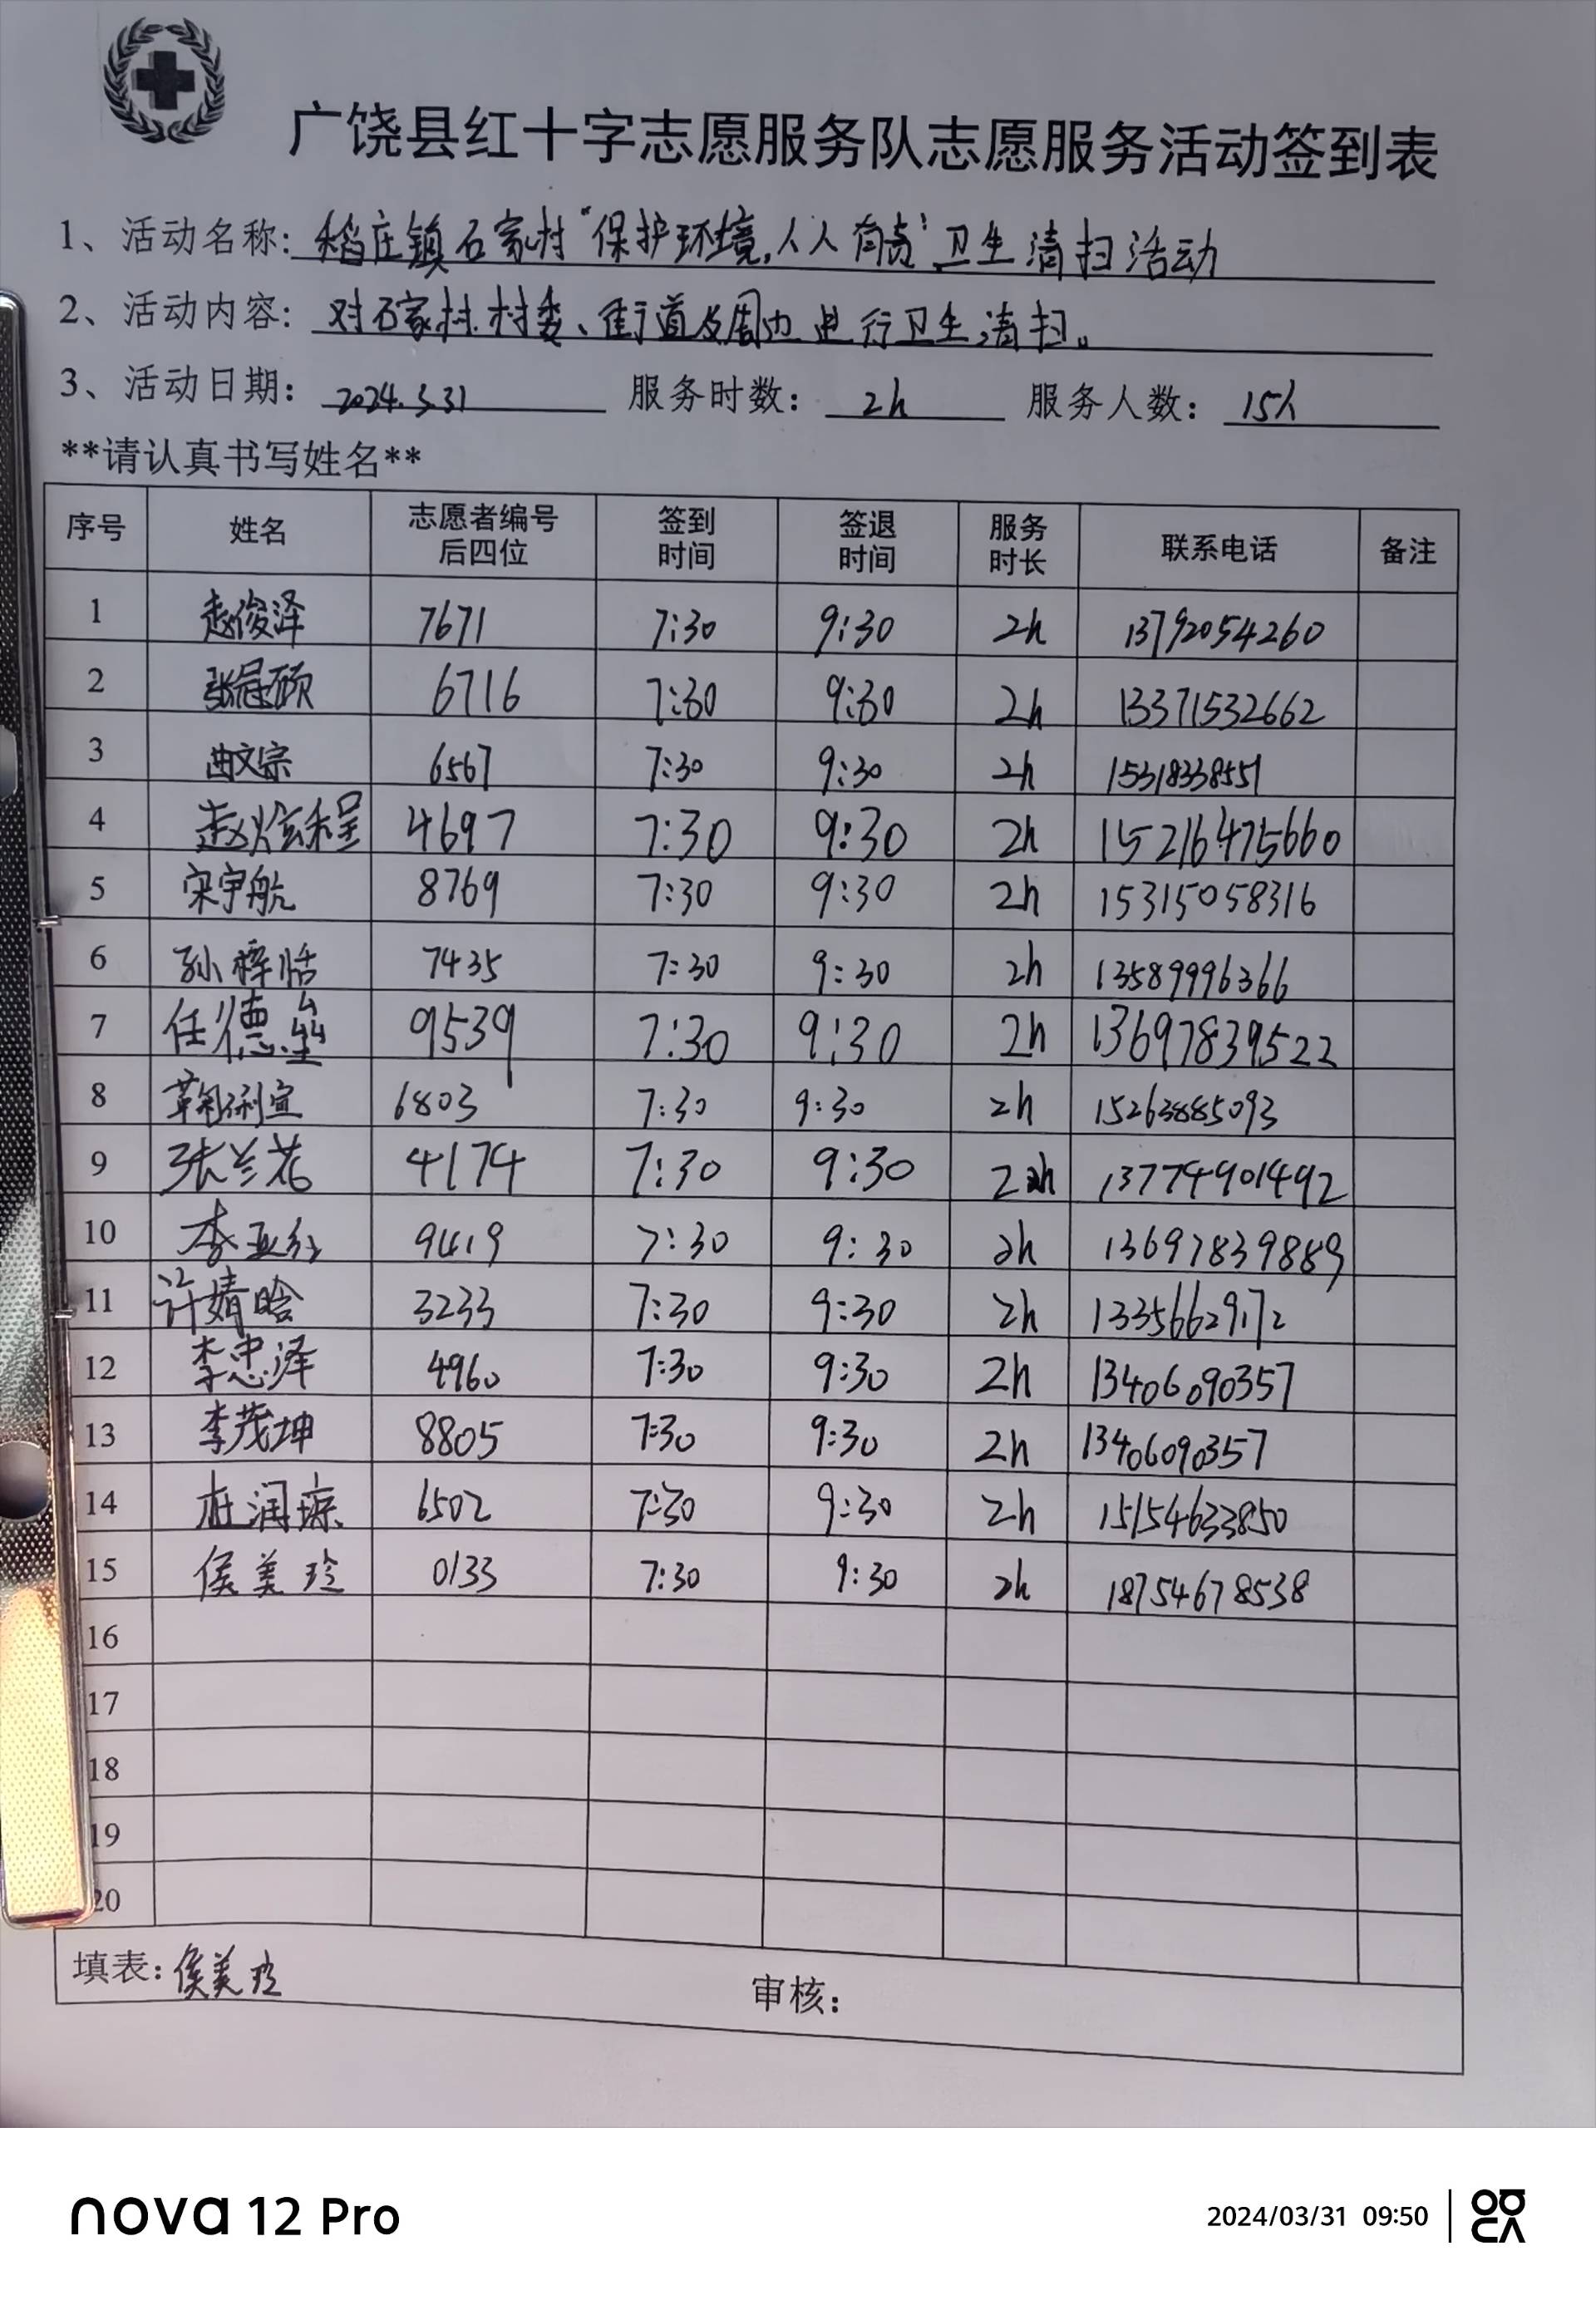 广饶县红十字志愿服务队志愿服务活动签到表
1、活动名称: 稻庄镇石家村“保护环境,人人有责”卫生清扫活动
2、活动内容: 对石家村、村委、街道及周边进行卫生清扫。
3、活动日期: 2024.3.31 服务时数: 2h 服务人数: 15人
**请认真书写姓名**
序号 姓名 志愿者编号后四位 签到时间 签退时间 服务时长 联系电话 备注
1 赵俊泽 7671 7:30 9:30 2h 13792054260
2 张冠硕 6716 7:30 9:30 2h 13371532662
3 曲文宗 6567 7:30 9:30 2h 15318338551
4 赵炫程 4697 7:30 9:30 2h 15216475660
5 宋宇航 8769 7:30 9:30 2h 15315058316
6 孙梓恬 7435 7:30 9:30 2h 13589996366
7 任德 9539 7:30 9:30 2h 13697839522
8 鞠俐宣 6803 7:30 9:30 2h 15263885093
9 张兰花 4174 7:30 9:30 2h 13774901492
10 李亚红 9419 7:30 9:30 2h 13697839889
11 许婧晗 3233 7:30 9:30 2h 13356629172
12 李忠泽 4960 7:30 9:30 2h 13406090357
13 李茂坤 8805 7:30 9:30 2h 13406090357
14 杜润琼 6502 7:30 9:30 2h 15154633850
15 侯美玲 0133 7:30 9:30 2h 18754678538
16
17
18
19
20
填表: 侯美玲 审核:
nova 12 Pro
2024/03/31 09:50